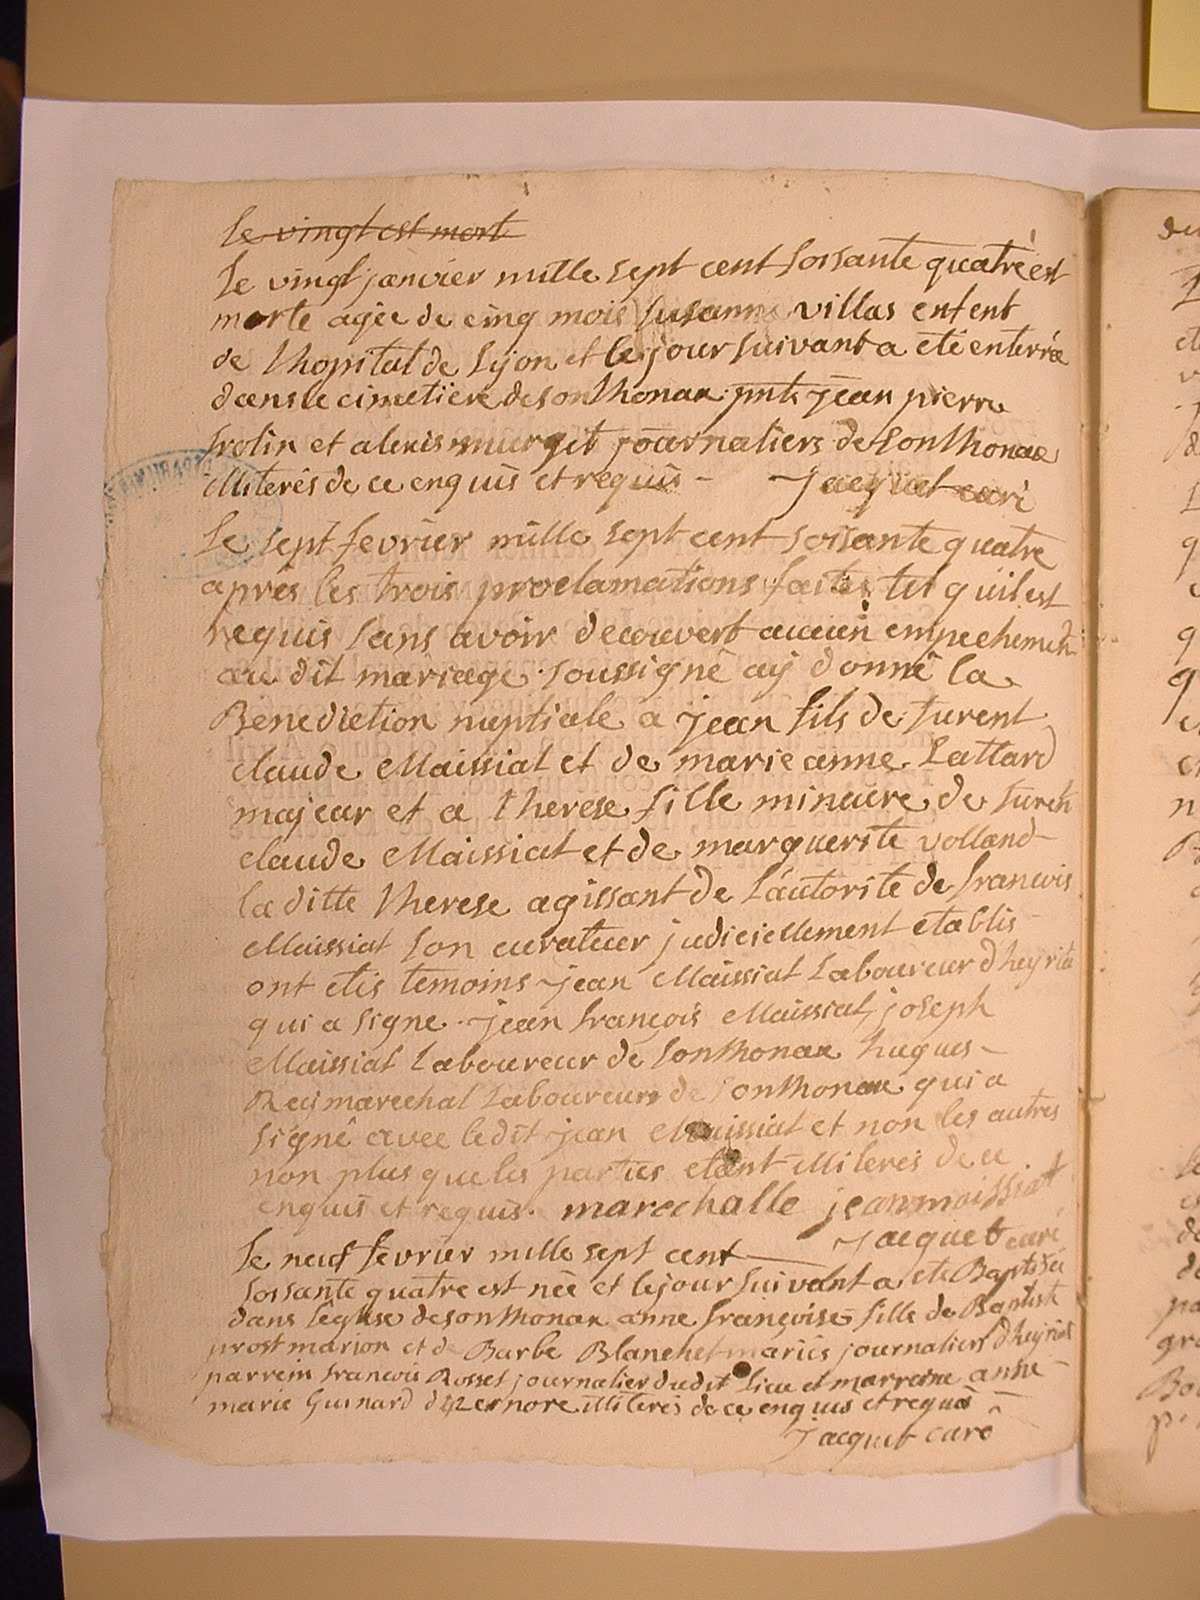 le vingt est mort
Le vingt janvier mille sept cent sossante quatre est
morte agée de cinq mois susanne villas enfent
de l'hopital de Lyon et le jour suivant a eté enterrée
dans le cimetiere de sonthonax pnts jean pierre
frolin et alexis murgit journaliers de sonthonax
illiterés de ce enquis et requis - Jacquet curé
Le sept fevrier mille sept cent sossante quatre
aprés les trois proclamations faites tel qu'il est
requis sans avoir decouvert aucun empechement
au dit mariage soussigné aÿ donné la
Benediction nuptiale a jean fils de furent
claude Maissiat et de marie anne Lattard
majeur et a therese fille mineure de furent
claude Maissiat et de marguerite volland
la ditte therese agissant de l'autorité de francois
Maissiat son curateur judiciellement etablis
ont etés temoins jean Maissiat Laboureur d'heyria
qui a signé jean françois Maissiat, joseph
Maissiat Laboureur de sonthonax hugues
marechal Laboureurs de sonthonax qui a
signé avec ledit jean Maissiat et non les autres
non plus que les parties etant illiterés de ce
enquis et requis. marechalle jean maissiat
Jacquet curé
le neuf fevrier mille sept cent
sossante quatre est née et le jour suivant a eté Baptisée
dans l'eglise de sonthonax anne françoise fille de Baptiste
prost marion et de Barbe Blanchet mariés journaliers d'heyriat
parrein francois Rosset journalier dudit lieu et marreine anne
marie Guinard d'izernore illiterés de ce enquis et requis
Jacquet curé